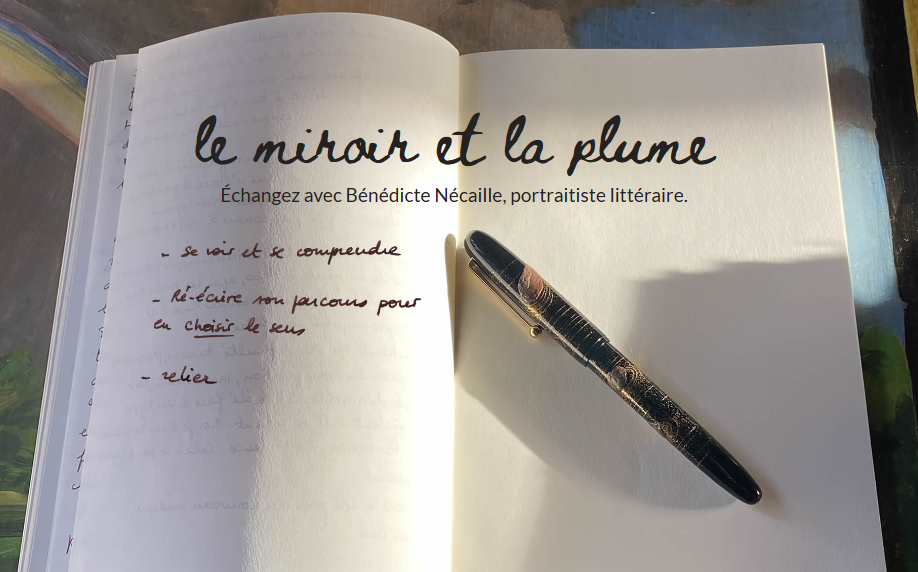 le miroir et la plume
Échangez avec Bénédicte Nécaille, portraitiste littéraire.
- se voir et se comprendre
- Ré-écrire son parcours pour
en choisir le sens
- relier